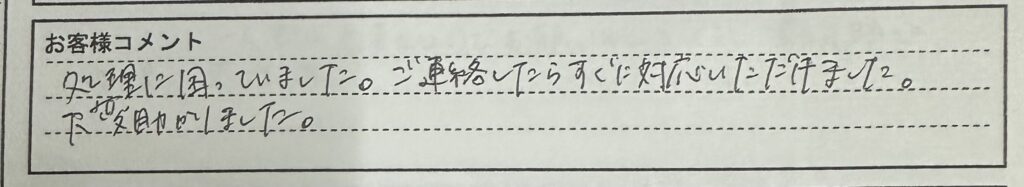 お客様コメント
処理に困っていました。ご連絡したらすぐに対応いただけました。
大変助かりました。